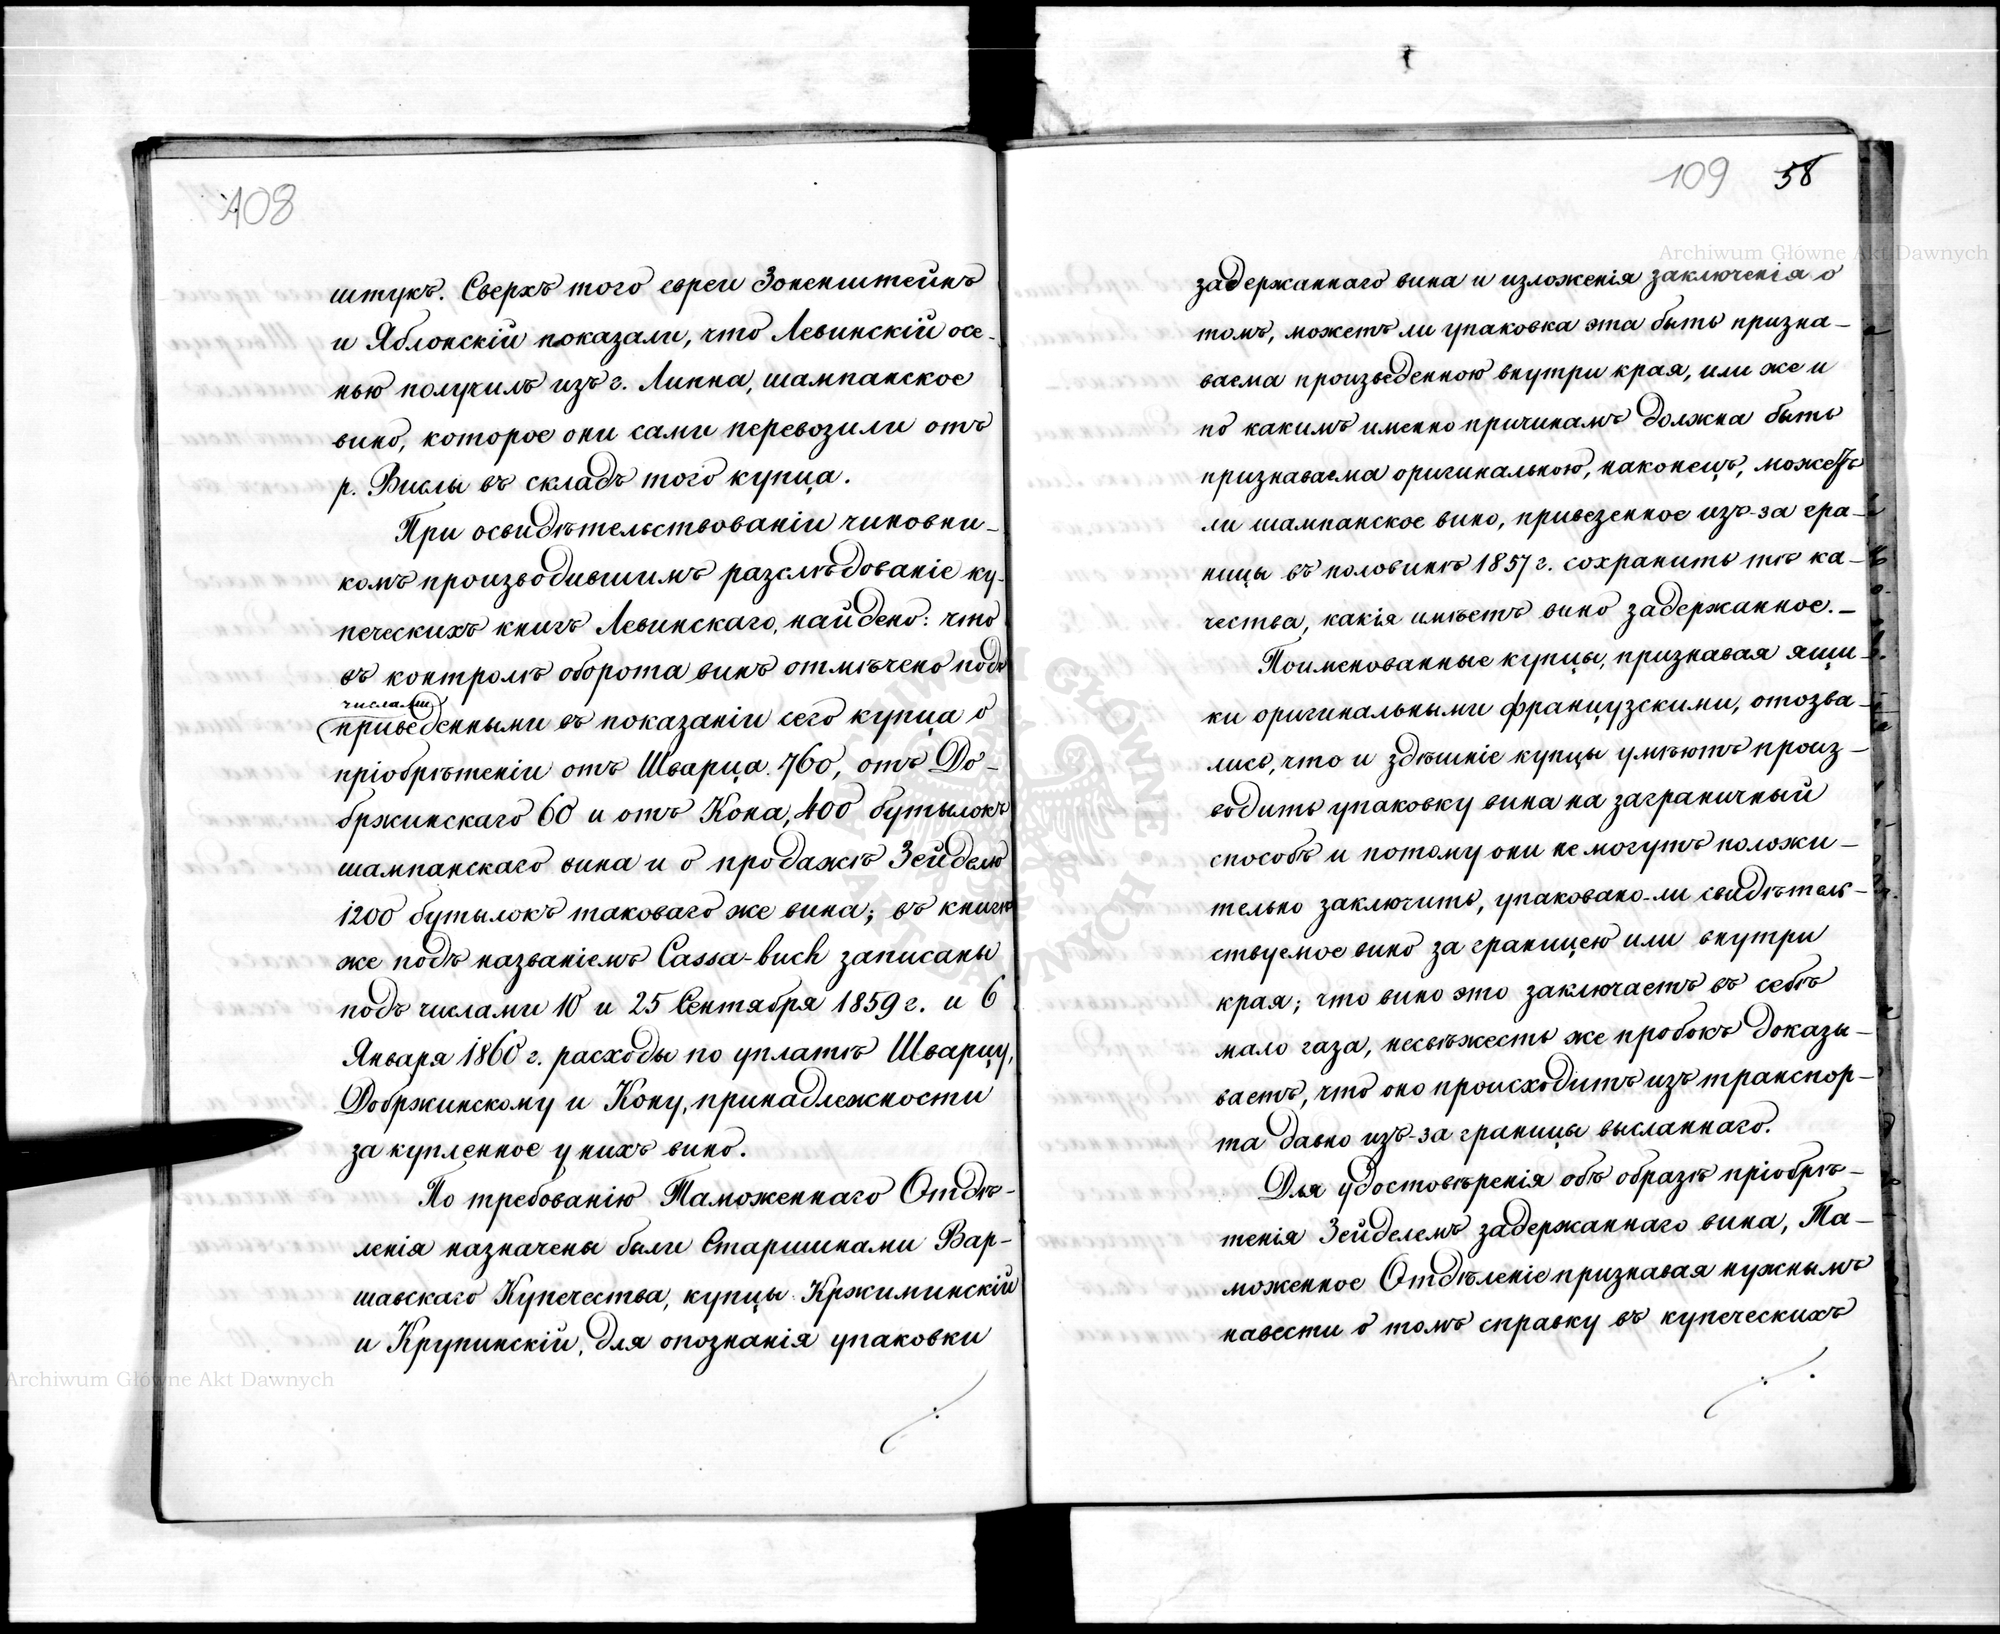 108
штукъ. Сверхъ того евреи Зоненштейнъ
и Яблонскій показали, что Левинскій осе-
нью получилъ изъ г. Липна, шампанское
вино, которое они сами перевозили отъ
р. Вислы въ складъ того купца.
При освидѣтельствованіи чиновни-
комъ производившимъ разслѣдованіе ку-
печескихъ книгъ Левинскаго, найдено: что
въ контролѣ оборота винъ отмѣчено подъ
числами
приведенными въ показаніи сего купца о
пріобрѣтеніи отъ Шварца 760, отъ До-
бржинскаго 60 и отъ Кона, 400 бутылокъ
шампанскаго вина и о продажѣ Зейделю
1200 бутылокъ таковаго же вина; въ книгѣ
же подъ названіемъ Cassa-buch записаны
подъ числами 10 и 25 Сентября 1859 г. и 6
Января 1860 г. расходы по уплатѣ Шварцу,
Добржинскому и Кону, принадлежности
за купленное у нихъ вино.
По требованію Таможеннаго Отдѣ-
ленія назначены были Старшинами Вар-
шавскаго Купечества, купцы Кржиминскій
и Крупинскій, для опознанія упаковки
109 58
задержаннаго вина и изложенія заключенія о
томъ, можетъ ли упаковка эта быть призна-
ваема произведенною внутри края, или же и
по какимъ именно причинамъ должна быть
признаваема оригинальною, наконецъ, можетъ
ли шампанское вино, привезенное изъ-за гра-
ницы въ половинѣ 1857 г. сохранить тѣ ка-
чества, какія имѣетъ вино задержанное.-
Поименованные купцы, признавая ящи-
ки оригинальными французскими, отозва-
лись, что и здѣшніе купцы умѣютъ произ-
водить упаковку вина на заграничный
способъ и потому они не могутъ положи-
тельно заключить, упаковано-ли свидѣтель-
ствуемое вино за границею или внутри
края; что вино это заключаетъ въ себѣ
мало газа, несвѣжесть же пробокъ доказы-
ваетъ, что оно происходитъ изъ транспор-
та давно изъ-за границы высланнаго.
Для удостовѣренія объ образѣ пріобрѣ-
тенія Зейделемъ задержаннаго вина, Та-
моженное Отдѣленіе признавая нужнымъ
навести о томъ справку въ купеческихъ
Archiwum Główne Akt Dawnych
Archiwum Główne Akt Dawnych